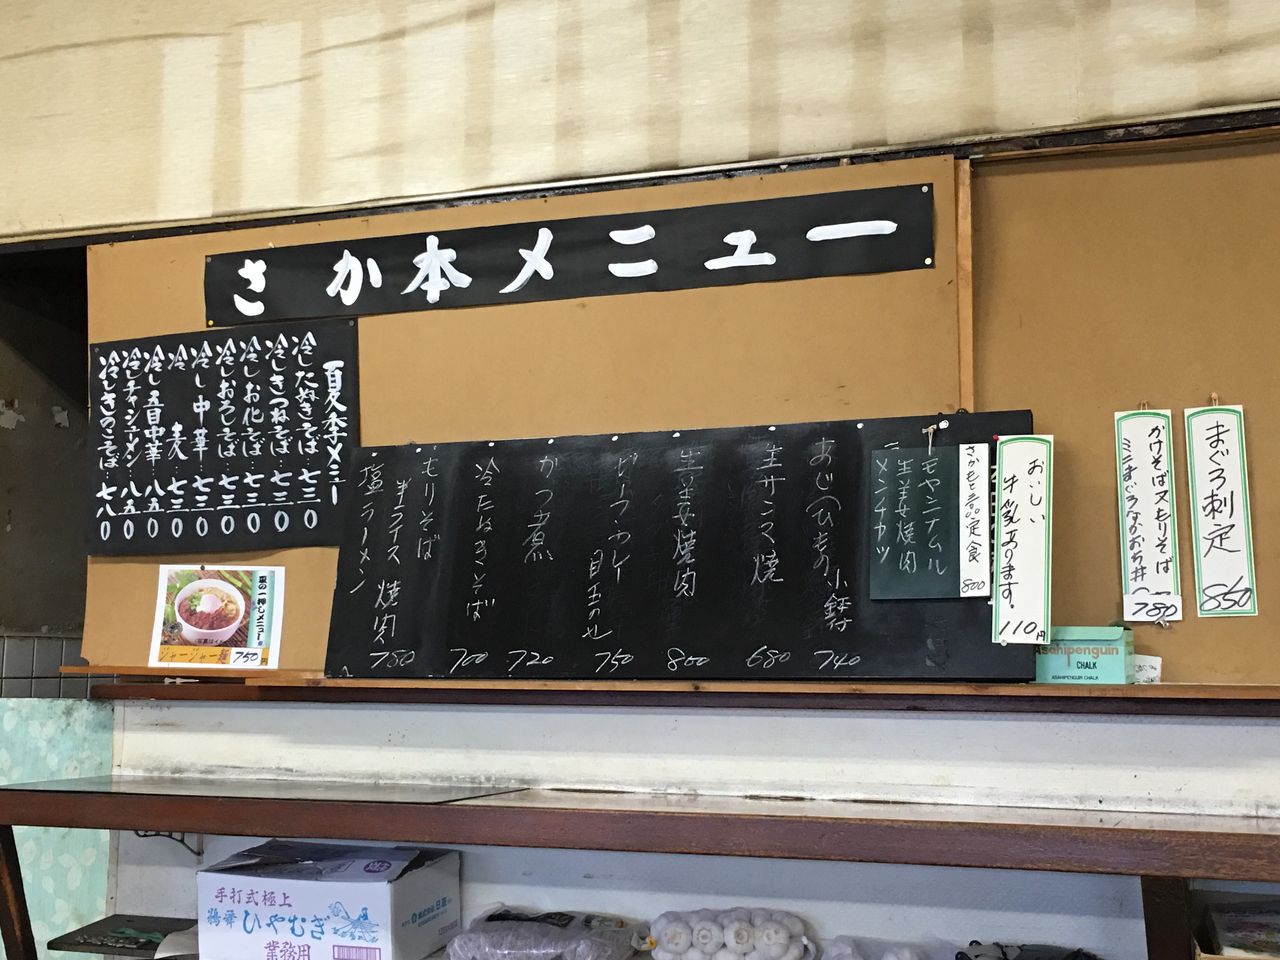 さか本メニュー
夏季メニュー
冷したぬきそば 七三〇
冷しきつねそば 七三〇
冷しお化そば… 七三〇
冷しおろしそば… 七三〇
冷し中華… 七三〇
冷 麦… 七三〇
冷し五目中華 八五〇
冷しチャシューメン 八五〇
冷しきのこそば 七八〇
一押しメニュー
ジャージャー麺 750円
あじ(ひもの 小鉢付 740
生サンマ焼 680
生姜焼肉 800
ビーフカレー 目玉のせ 750
かつ煮 720
冷たぬきそば 700
もりそば
半ライス 焼肉
塩ラーメン 780
モヤシナムル
生姜焼肉
メンチカツ
さかもと 定食 800
おいしい
牛乳あります。 110円
かけそば又もりそば
ミニまぐろなかおち丼 780
まぐろ刺定 850
Asahipenguin
CHALK
ASAHIPENGUIN CHALK
手打式極上
ひやむぎ
業務用